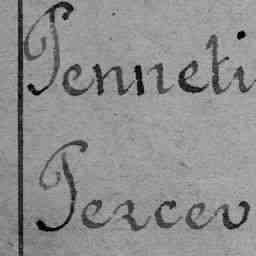 Penneti
Percev